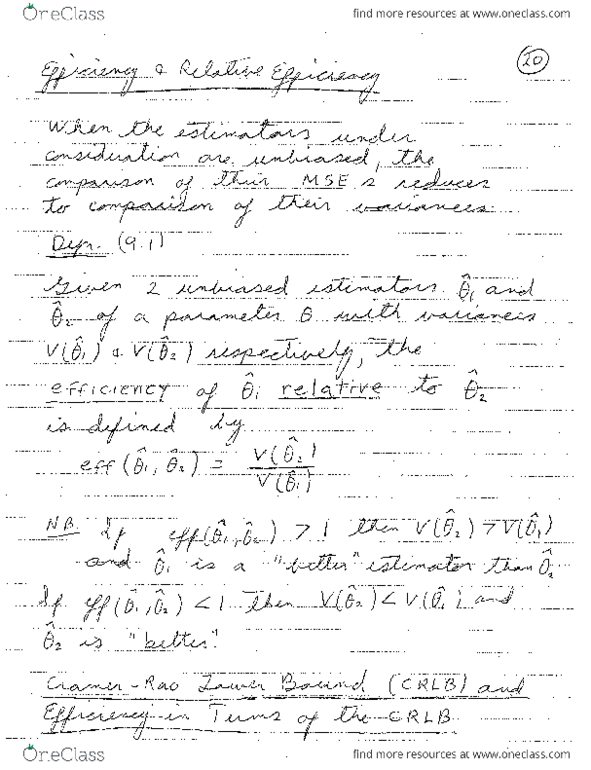 OneClass
find more resources at www.oneclass.com
20
Efficiency & Relative Efficiency
When the estimators under
consideration are unbiased, the
comparison of their MSE s reduces
to comparison of their variances.
Defn. (9.1)
Given 2 unbiased estimators θ̂₁ and
θ̂₂ of a parameter θ with variances
V(θ̂₁) & V(θ̂₂) respectively, the
efficiency of θ̂₁ relative to θ̂₂
is defined by
eff(θ̂₁, θ̂₂) = V(θ̂₂) / V(θ̂₁)
N.B. If eff(θ̂₁, θ̂₂) > 1 then V(θ̂₂) > V(θ̂₁)
and θ̂₁ is a "better" estimator than θ̂₂
If eff(θ̂₁, θ̂₂) < 1 then V(θ̂₂) < V(θ̂₁) and
θ̂₂ is "better".
Cramer-Rao Lower Bound (CRLB) and
Efficiency in Terms of the CRLB
OneClass
find more resources at www.oneclass.com